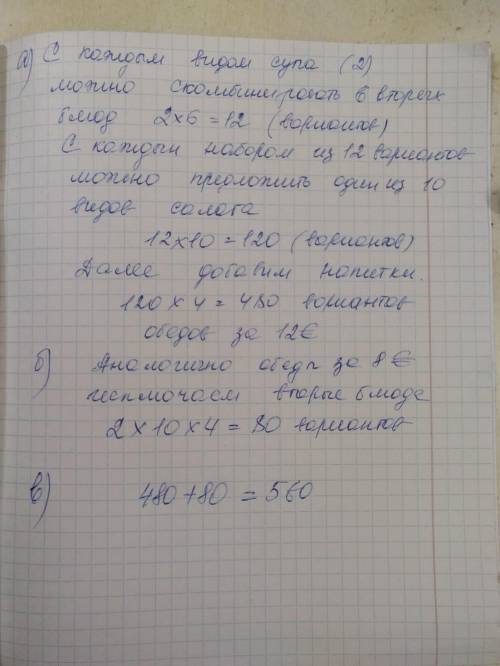 а) С каждым видом супа (2)
можно скомбинировать 6 вторых
блюд 2×6=12 (вариантов)
С каждым набором из 12 вариантов
можно предложить один из 10
видов салата
12×10=120 (вариантов)
Далее добавим напитки.
120×4=480 вариантов
обедов за 12€
б) Аналогично обеды за 8€
исключаем вторые блюда
2×10×4=80 вариантов
в) 480+80=560